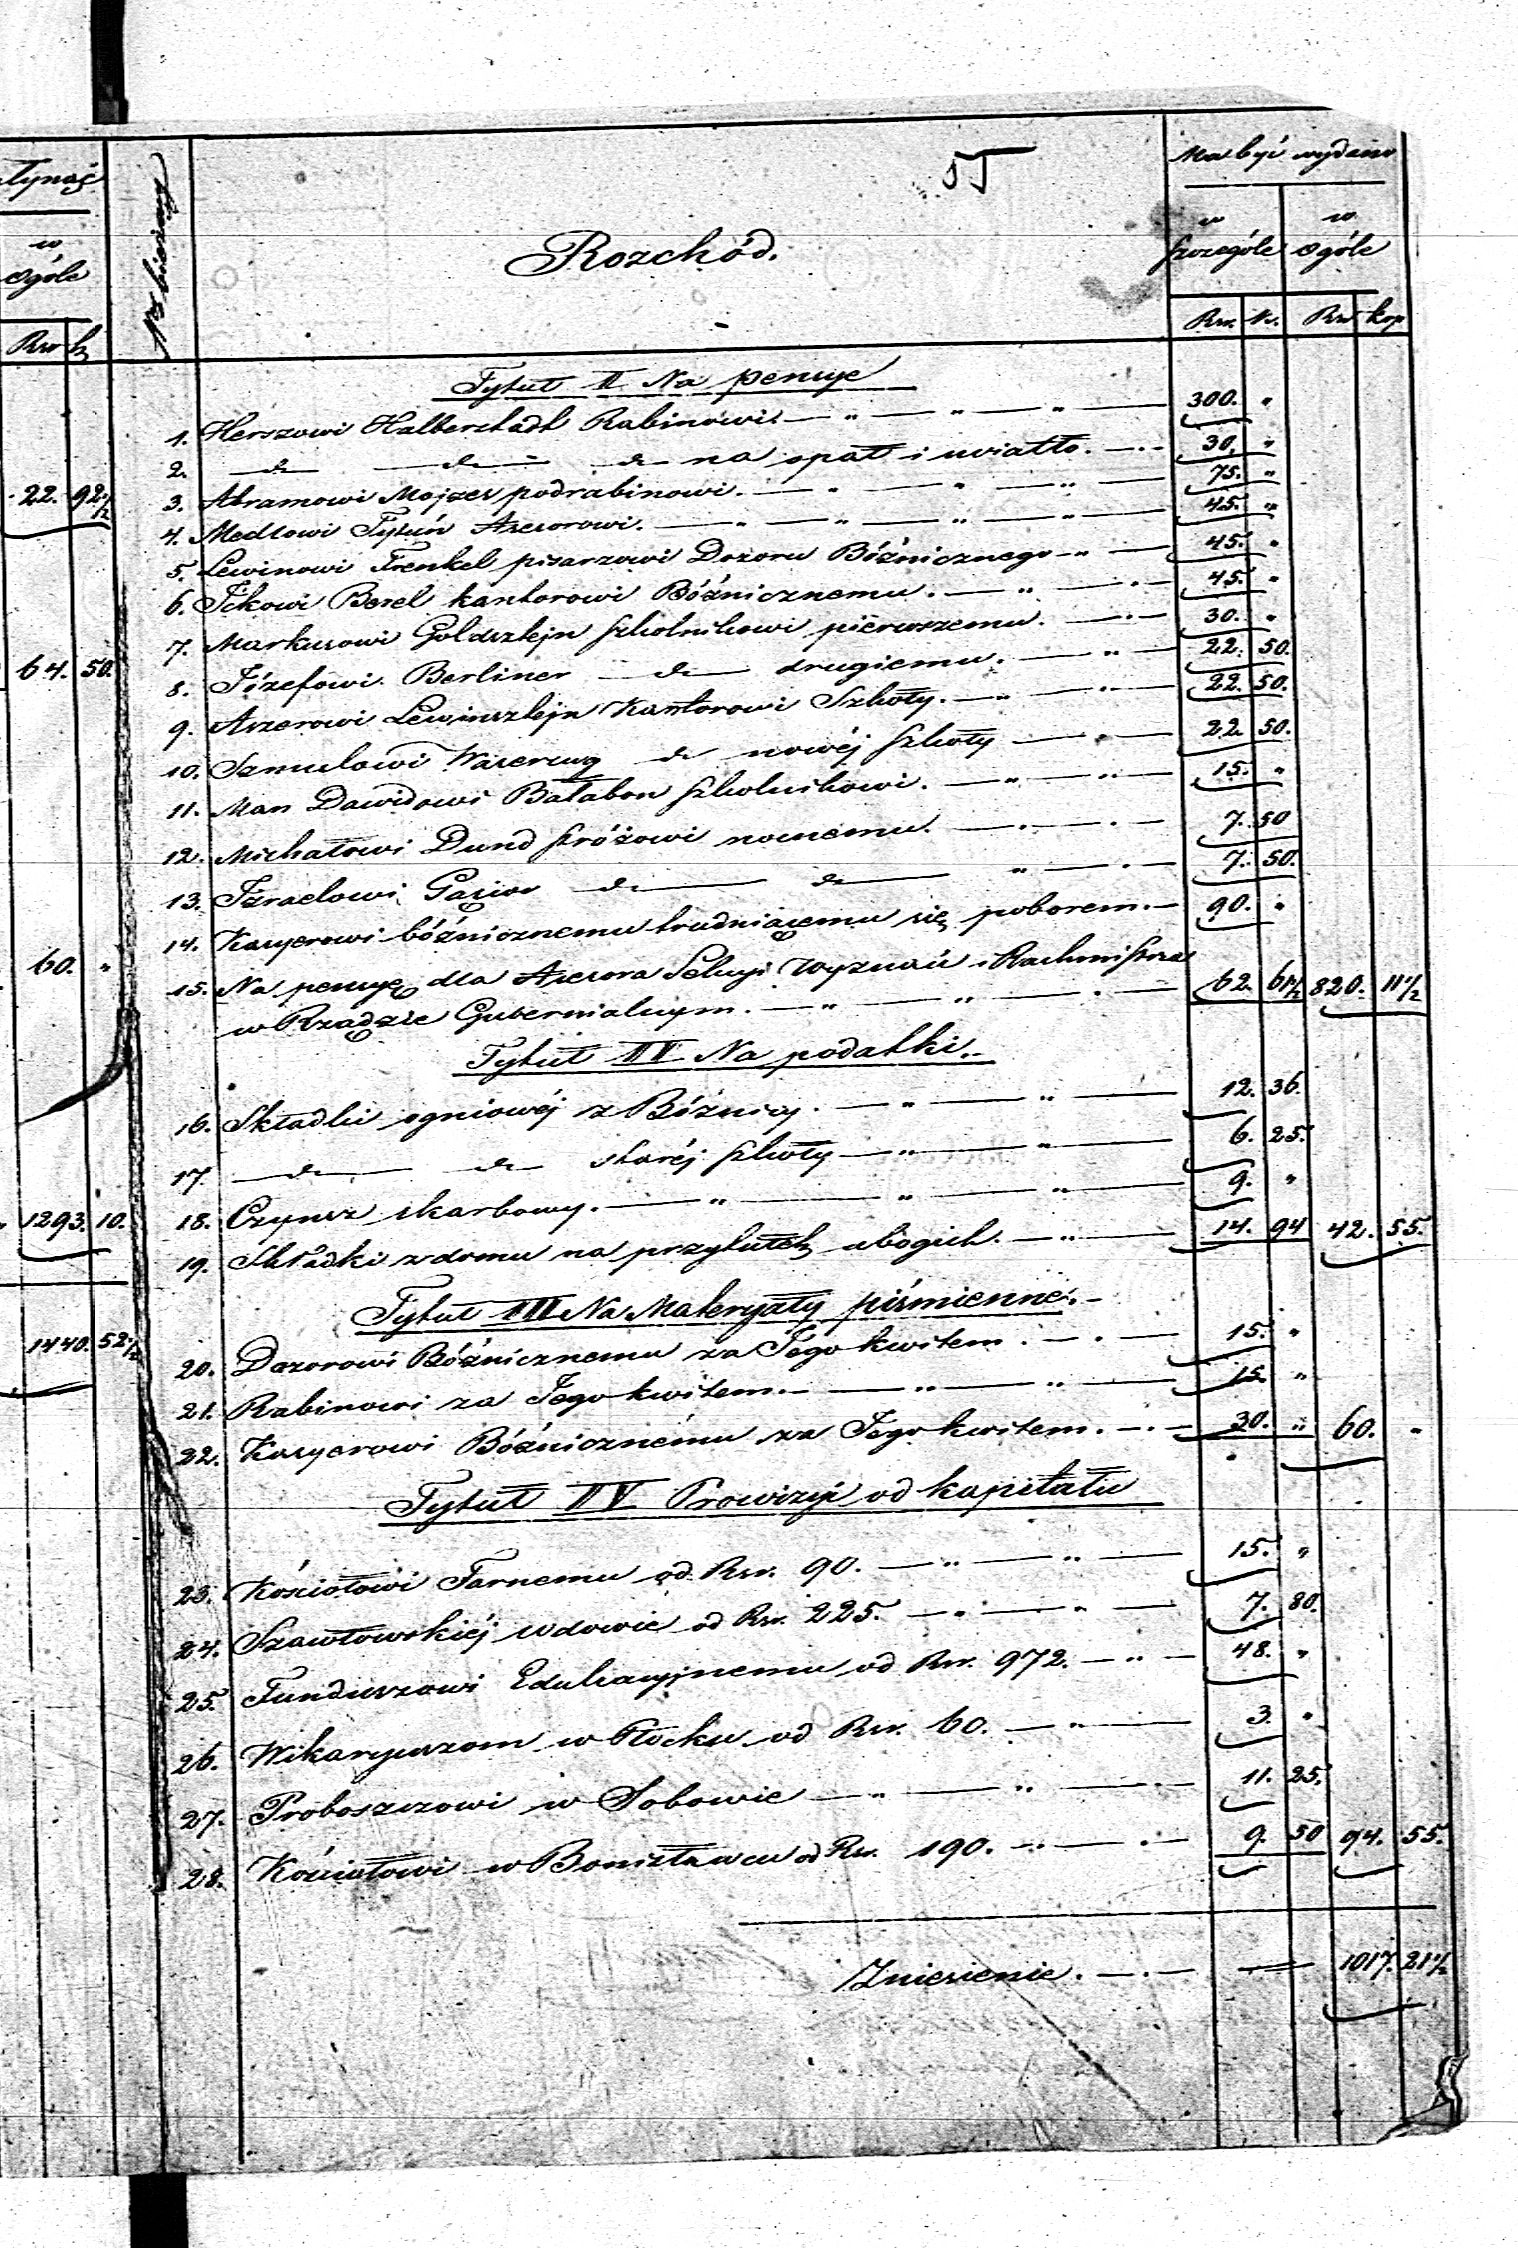 łynąć
w
ogóle
Rsr k
22. 92 1/2
64. 50.
60. "
1293. 10.
1440. 52 1/2
Nr bieżący
Rozchód.
Ma być wydano
w szczególe
w ogóle
Rsr. k. Rsr kop
Tytuł II Na pensye
1. Herszowi Halberstadt Rabinowi. — " — " — " — 300. "
2. — do — do — do — na opał i światło. — . — 30. "
3. Abramowi Mojzes podrabinowi. — " — " — " — 75. "
4. Tytuń Asesorowi. — " — " — " — " — 45. "
5. Lewinowi Frenkel pisarzowi Dozoru Bóżnicznego — " — 45. "
6. Ickowi Berel kantorowi Bóżnicznemu. — " — . — 45. "
7. Markusowi Goldsztejn szkolnikowi pierwszemu. — . — 30. "
8. Józefowi Berliner — do — drugiemu. — " — 22. 50.
9. Aszerowi Lewinsztejn Kantorowi Szkoły. — " — " — 22. 50.
10. Szmulowi do nowéj szkoły — " — 22. 50.
11. Man Dawidowi Bałabon szkolnikowi. — " — " — 15. "
12. Michałowi Dund stróżowi nocnemu. — . — . — 7. 50
13. Izraelowi do — do — " — . — 7. 50.
14. Kasyerowi bóżnicznemu trudniącemu się poborem. — 90. "
15. Na pensyę dla Asesora Sekcyi Wyznań i Rachmistrza
w Rządzie Gubernialnym. — " — " — . — 62. 61 1/2 820. 11 1/2
Tytuł II Na podatki. —
16. Składki ogniowéj z Bóżnicy. — " — " — 12. 36.
17 — do — do — staréj szkoły — " — " — 6. 25.
18. Czynsz skarbowy. — " — " — " — 9. "
19. Składki z domu na przytułek ubogich. — " — 14. 94 42. 55.
Tytuł III Na Materyały piśmienne. —
20. Dozorowi Bóżnicznemu za Jego kwitem. — . — 15. "
21. Rabinowi za Jego kwitem. — " — " — 15 "
22. Kasyerowi Bóżnicznému za Jego kwitem. — . — 30. " 60. "
Tytuł IV Prowizyi od kapitału
23. Kościołowi Farnemu od Rsr. 90. — " — " — 15. "
24. Szawłowskiéj wdowie od Rsr. 225. — . — " — 7. 80.
25. Funduszowi Edukacyjnemu od Rsr. 972. — " — 48. "
26. Wikaryuszom w Płocku od Rsr. 60. — " — 3. "
27. Proboszczowi w Sobowie — " — " — . — 11. 25.
28. Kościołowi w od Rsr. 190. — " — . — 9. 50 94. 55.
Zniesienie. — . — — 1017. 21 1/2